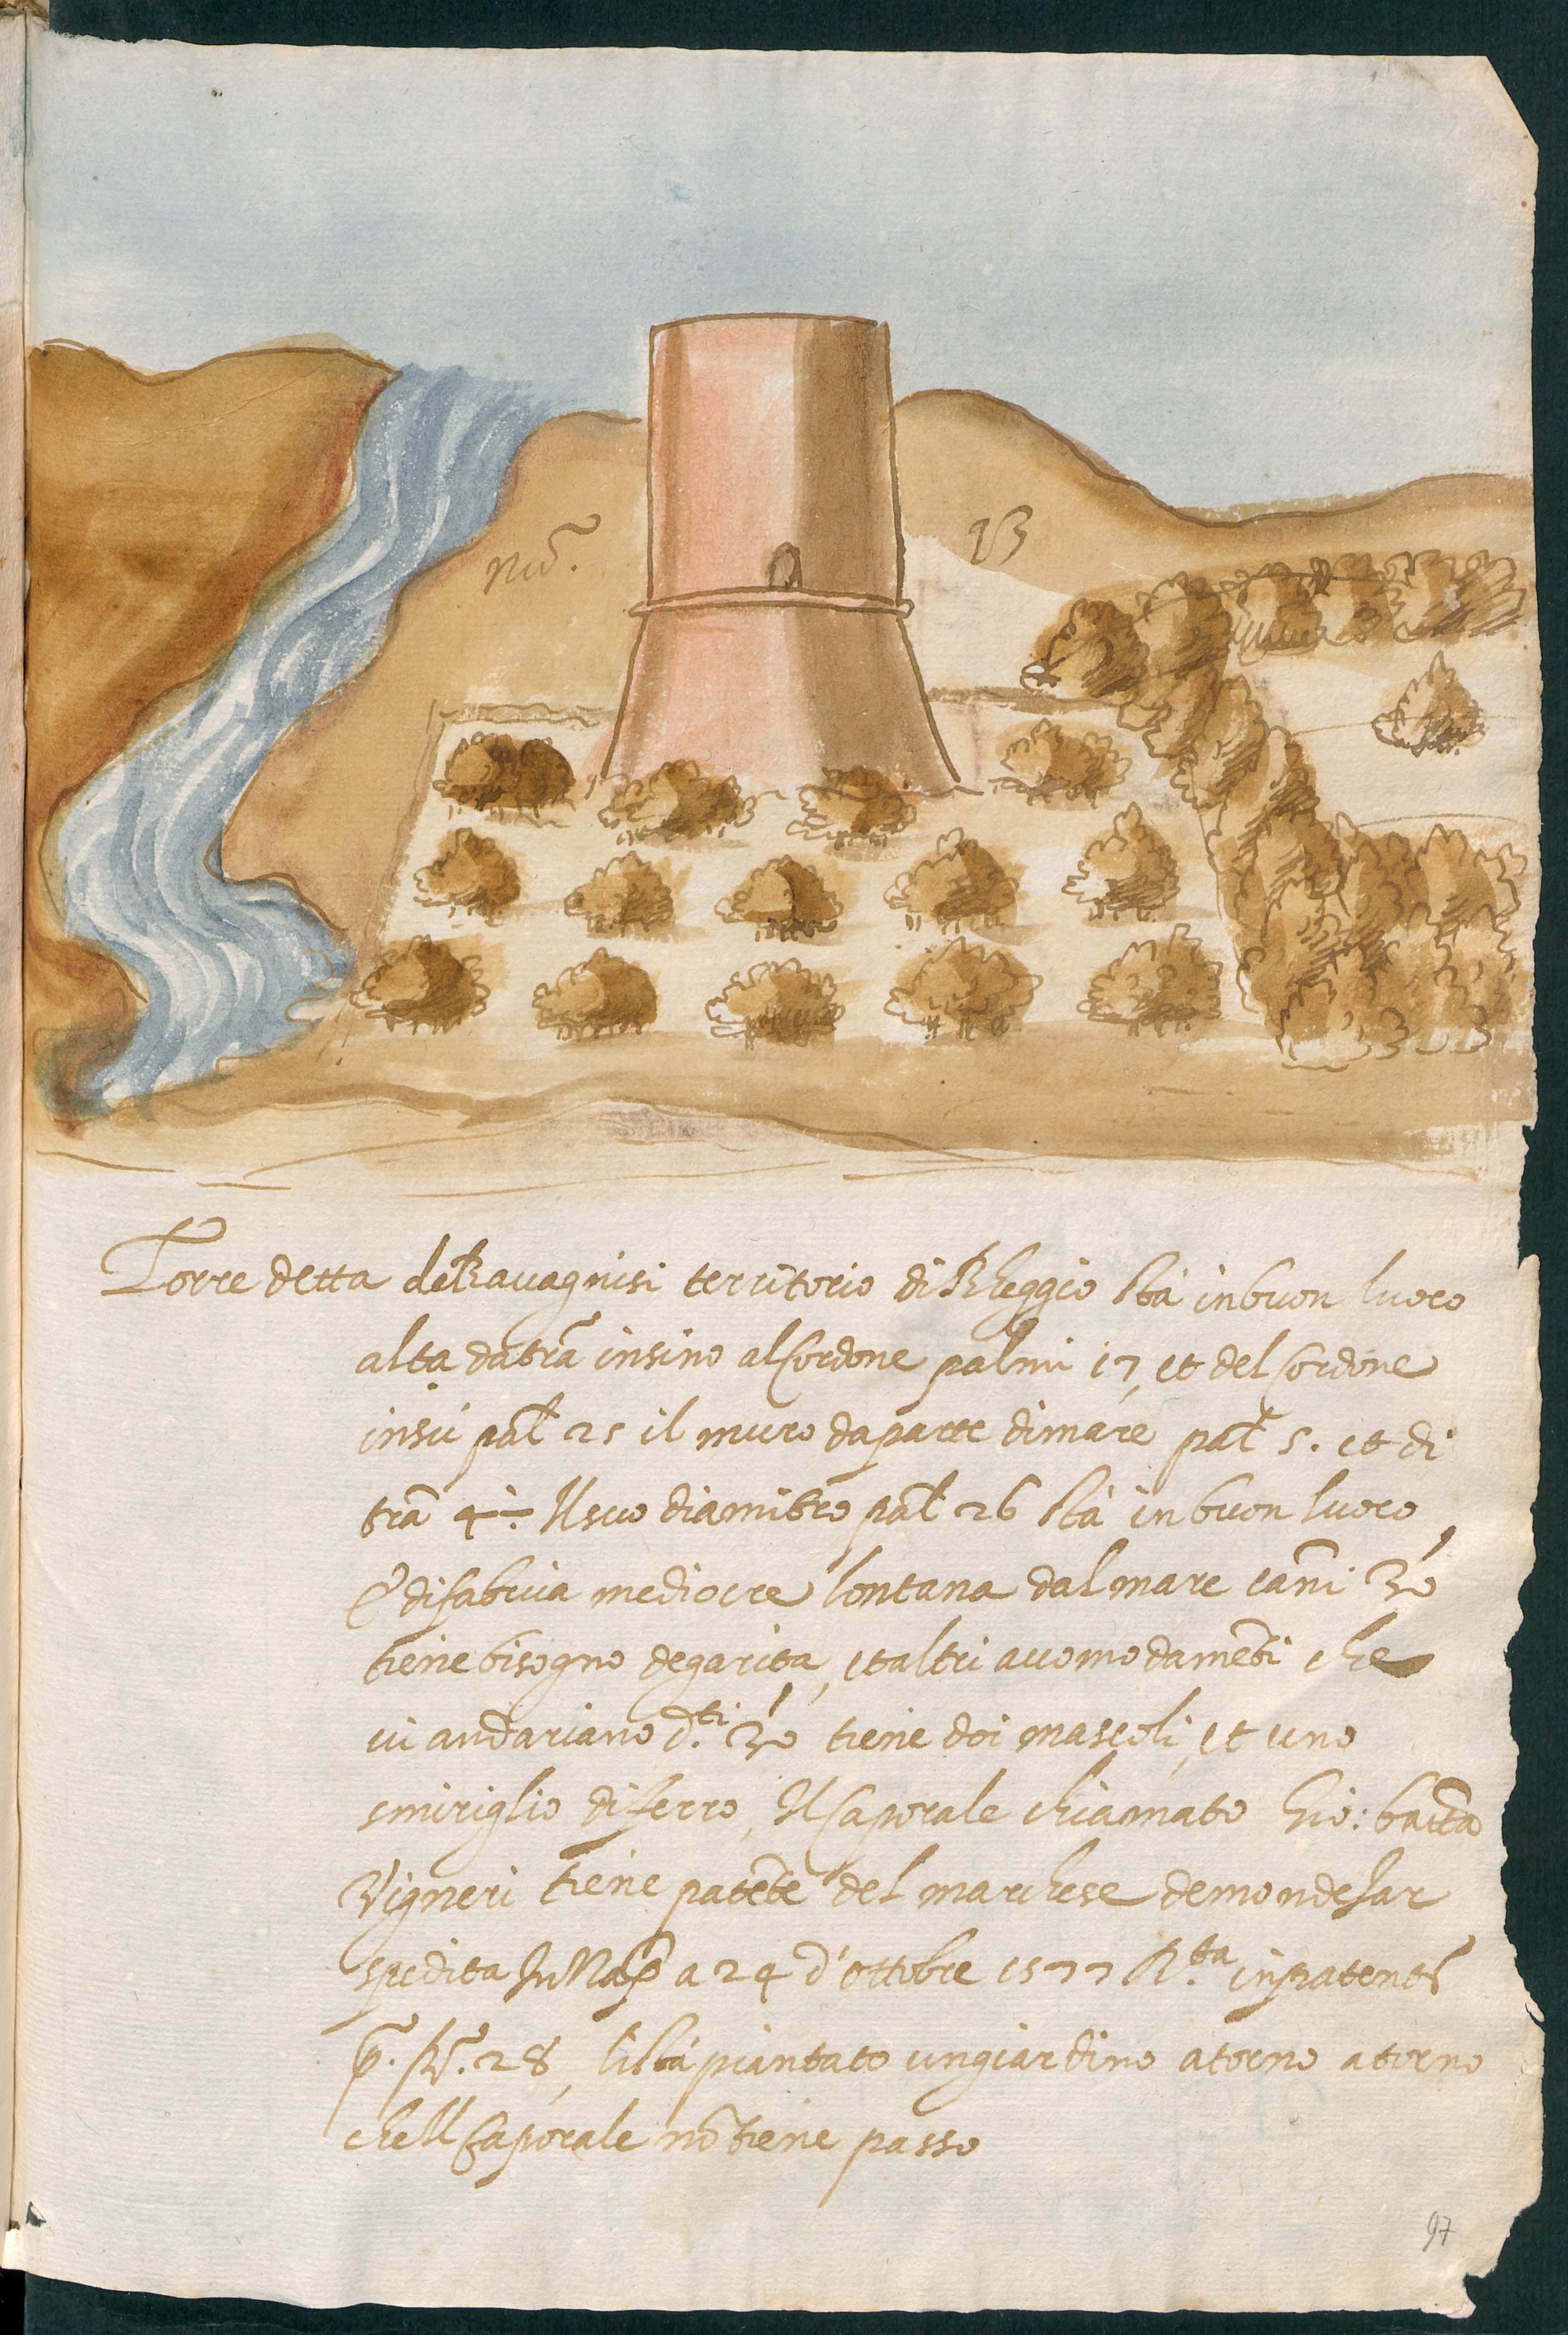 nu͂. 93
Torre detta de Ravagnisi territorio di Rheggio sta in buon luoco
alta da tr̃a insino al Cordone palmi 17, et del Cordone
insu pal̃ 25 il muro da parte di mare pal̃ 5. et di
tr̃a 4 Il suo diamitro pal̃ 26 sta in buon luoco
è di fabrica mediocre lontana dal mare cañi 30
tiene bisogno de garita, et altri accomodamẽti che
ci andariano d.ti 30 tiene doi mascoli, et uno
smiriglio di ferro, Il Caporale chiamato Gio: batt̃a
Vigneri tiene patẽte del marchese de mondesar
spedita In Nap̃ a 24 d'ottobre 1577 R.ta in patent̃
p̃. 28, li sta piantato un giardino atorno atorno
che Il Caporale nõ tiene passo
97